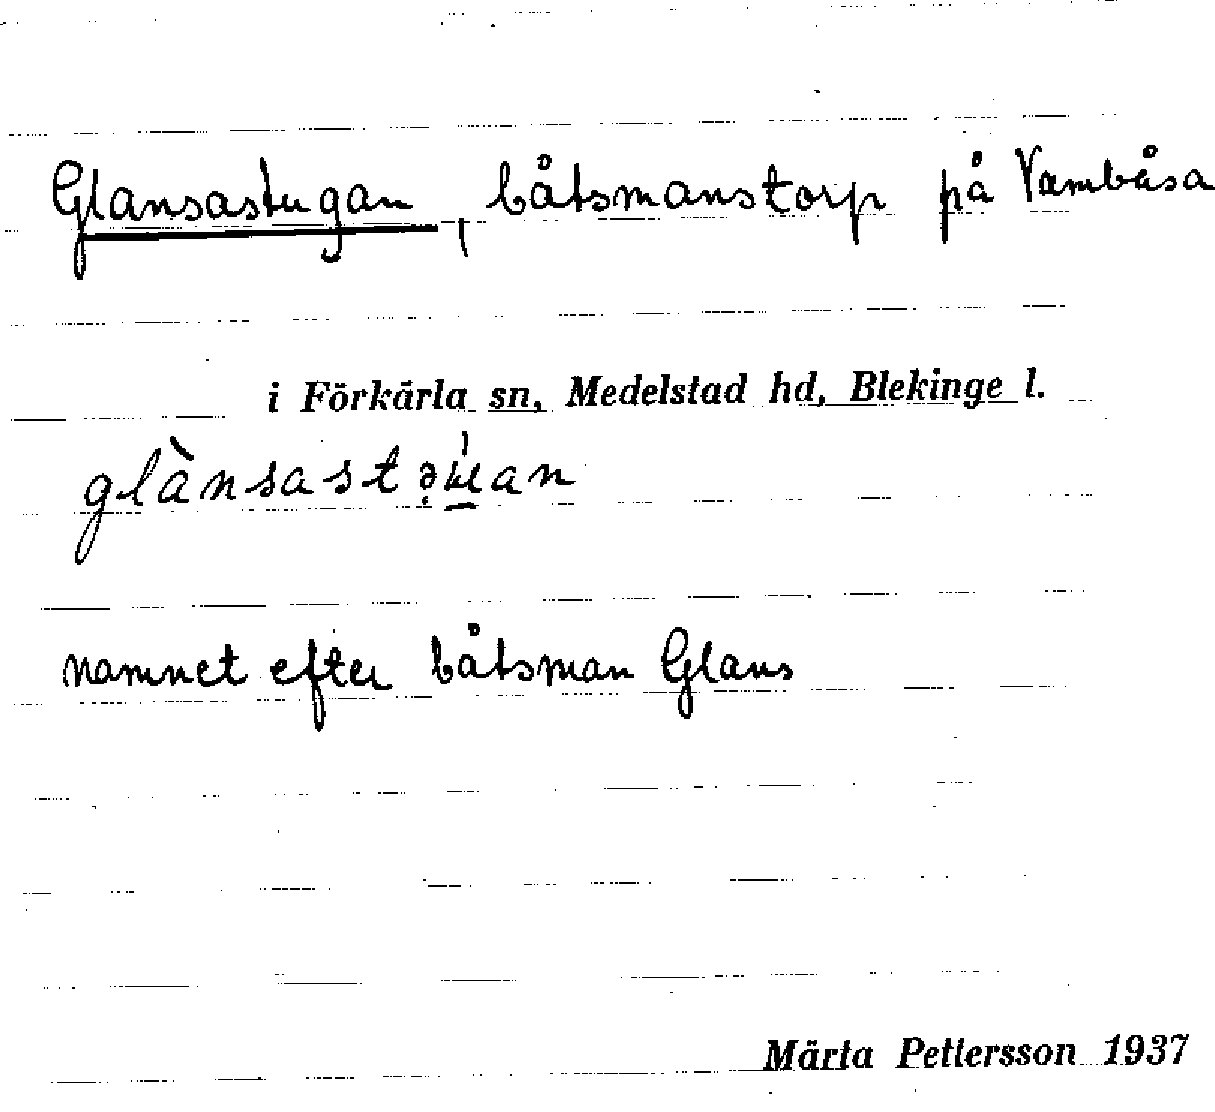 Glansastugan, båtsmanstorp på Vambåsa
i Förkärla sn, Medelstad hd, Blekinge l.
namnet efter båtsman Glans
Märta Pettersson 1937